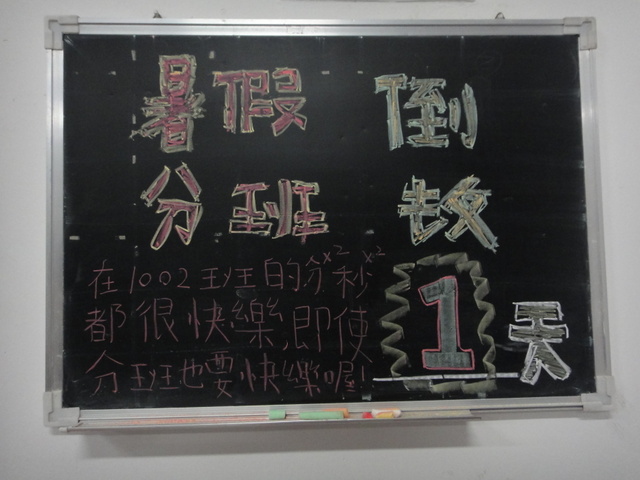 暑假 倒
分班 数
在1002班的分x2秒x2
都很快樂,即使
分班也要快樂喔!
1天